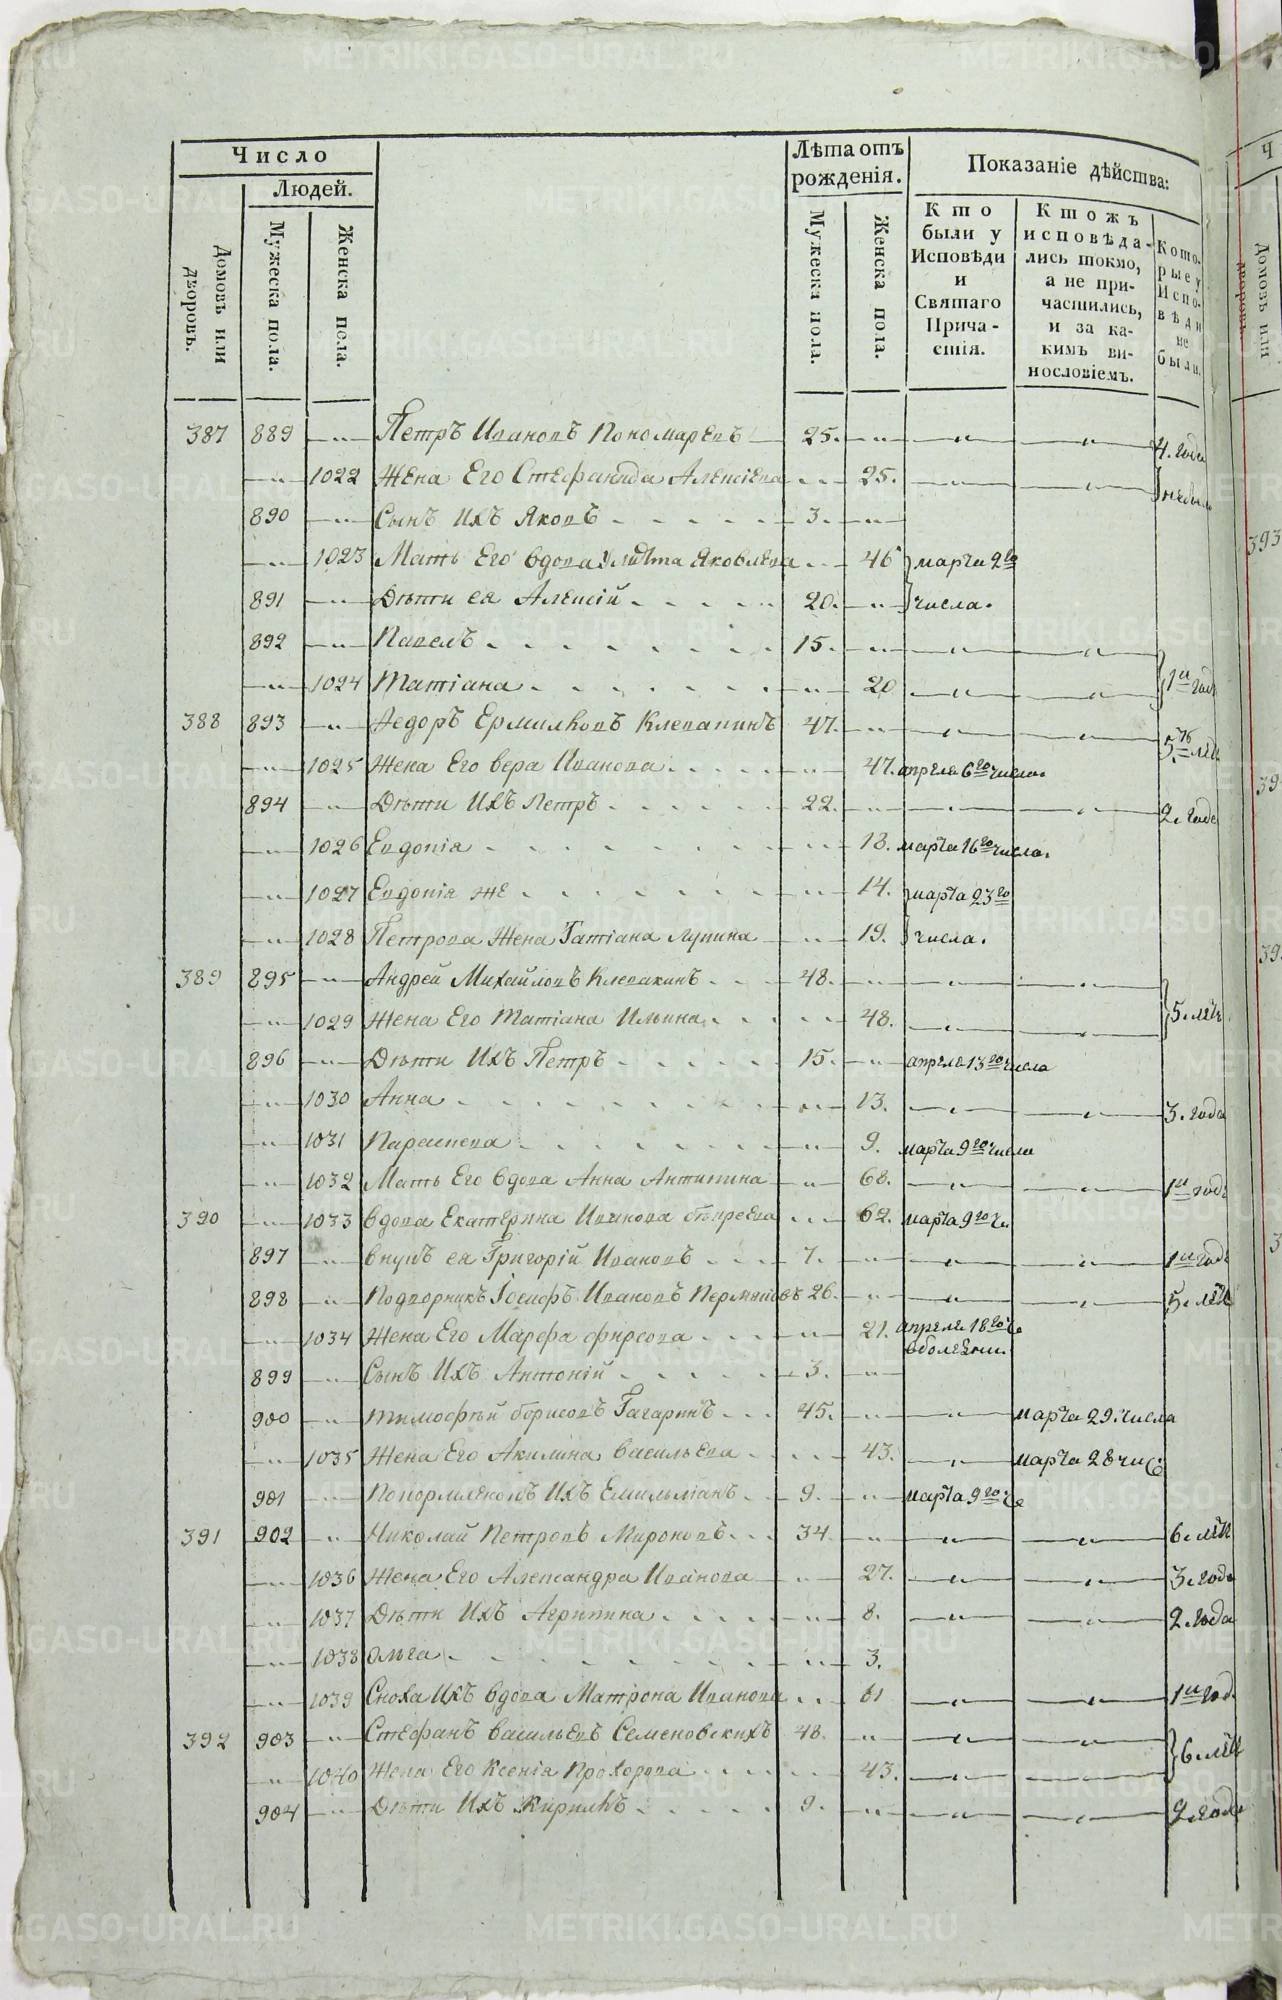 Число
Людей.
Лѣта отъ рожденія.
Показаніе дѣйства:
Домовъ или дворовъ.
Мужеска пола.
Женска пола.
Мужеска пола.
Женска пола.
Кто были у Исповѣди и Святаго Причастія.
Ктожъ исповѣдались токмо, а не причастились, и за какимъ винословіемъ.
Которые у Исповѣди не были.
387 889 —"— Петръ Ивановъ Пономаревъ 25. —"— —"— —"— 4. года
—"— 1022 Жена Его Стефанида Алексіева —"— 25. —"— —"— небыли
890 —"— Сынъ Ихъ Яковъ 3. —"—
—"— 1023 Мать Его вдова Улита Яковлева —"— 46 марта 9го
891 —"— Дѣти ея Алексій 20. —"— числа.
892 —"— Павелъ 15. —"— —"— —"—
—"— 1024 Татіана —"— 20 —"— —"— 1й годъ
388 893 —"— Федоръ Ермилковъ Клевакинъ 47. —"— —"— —"— 5ть лѣтъ
—"— 1025 Жена Его вера Иванова —"— 47. апреля 6го числа.
894 —"— Дѣти Ихъ Петръ 22. —"— —"— —"— 2. года
—"— 1026 Евдокія —"— 18. марта 16го числа.
—"— 1027 Евдокія же —"— 14. марта 23го
—"— 1028 Петрова Жена Татіана Лупина —"— 19. числа.
389 895 —"— Андрей Михайловъ Клевакинъ 48. —"— —"— —"—
—"— 1029 Жена Его Татіана Ильина —"— 48. —"— —"— 5. лѣтъ
896 —"— Дѣти Ихъ Петръ 15. —"— апреля 13го числа
—"— 1030 Анна —"— 13. —"— —"— 3. года
—"— 1031 Параскева —"— 9. марта 9го числа
—"— 1032 Мать Его вдова Анна Антипина —"— 68. —"— —"— 1й годъ
390 —"— 1033 вдова Екатерина Иванова —"— 62. марта 9го ч.
897 —"— внукъ ея Григорій Ивановъ 7. —"— —"— —"— 1й годъ
898 —"— Подворникъ Іосифъ Ивановъ 26. —"— —"— —"— 5. лѣтъ
—"— 1034 Жена Его Марфа Фирсова —"— 21. апреля 18го чс
вболезни.
899 —"— Сынъ Ихъ Антоній 3. —"—
900 —"— Тимофѣй борисовъ Гагаринъ 45. —"— —"— марта 29. числа
—"— 1035 Жена Его Акилина васильева —"— 43. —"— марта 28 чис
901 —"— Покормленокъ Ихъ Емильянъ 9. —"— марта 9го чс
391 902 —"— Николай Петровъ Мироновъ 34 —"— —"— —"— 6. лѣтъ
—"— 1036 Жена Его Александра Иванова —"— 27. —"— —"— 3. года
—"— 1037 Дѣти Ихъ Агрипина —"— 8. —"— —"— 2. года
—"— 1038 Ольга —"— 3.
—"— 1039 Сноха Ихъ вдова Матрона Иванова —"— 61 —"— —"— 1й год.
392 903 —"— Стефанъ васильевъ Семеновскихъ 48. —"— —"— —"—
—"— 1040 Жена Его Ксенія Прохорова —"— 43. —"— —"— 6. лѣтъ
904 —"— Дѣти Ихъ Кирилъ 9. —"— —"— —"— 2. года
Ч
Домовъ или
дворовъ.
393
METRIKI.GASO-URAL.RU